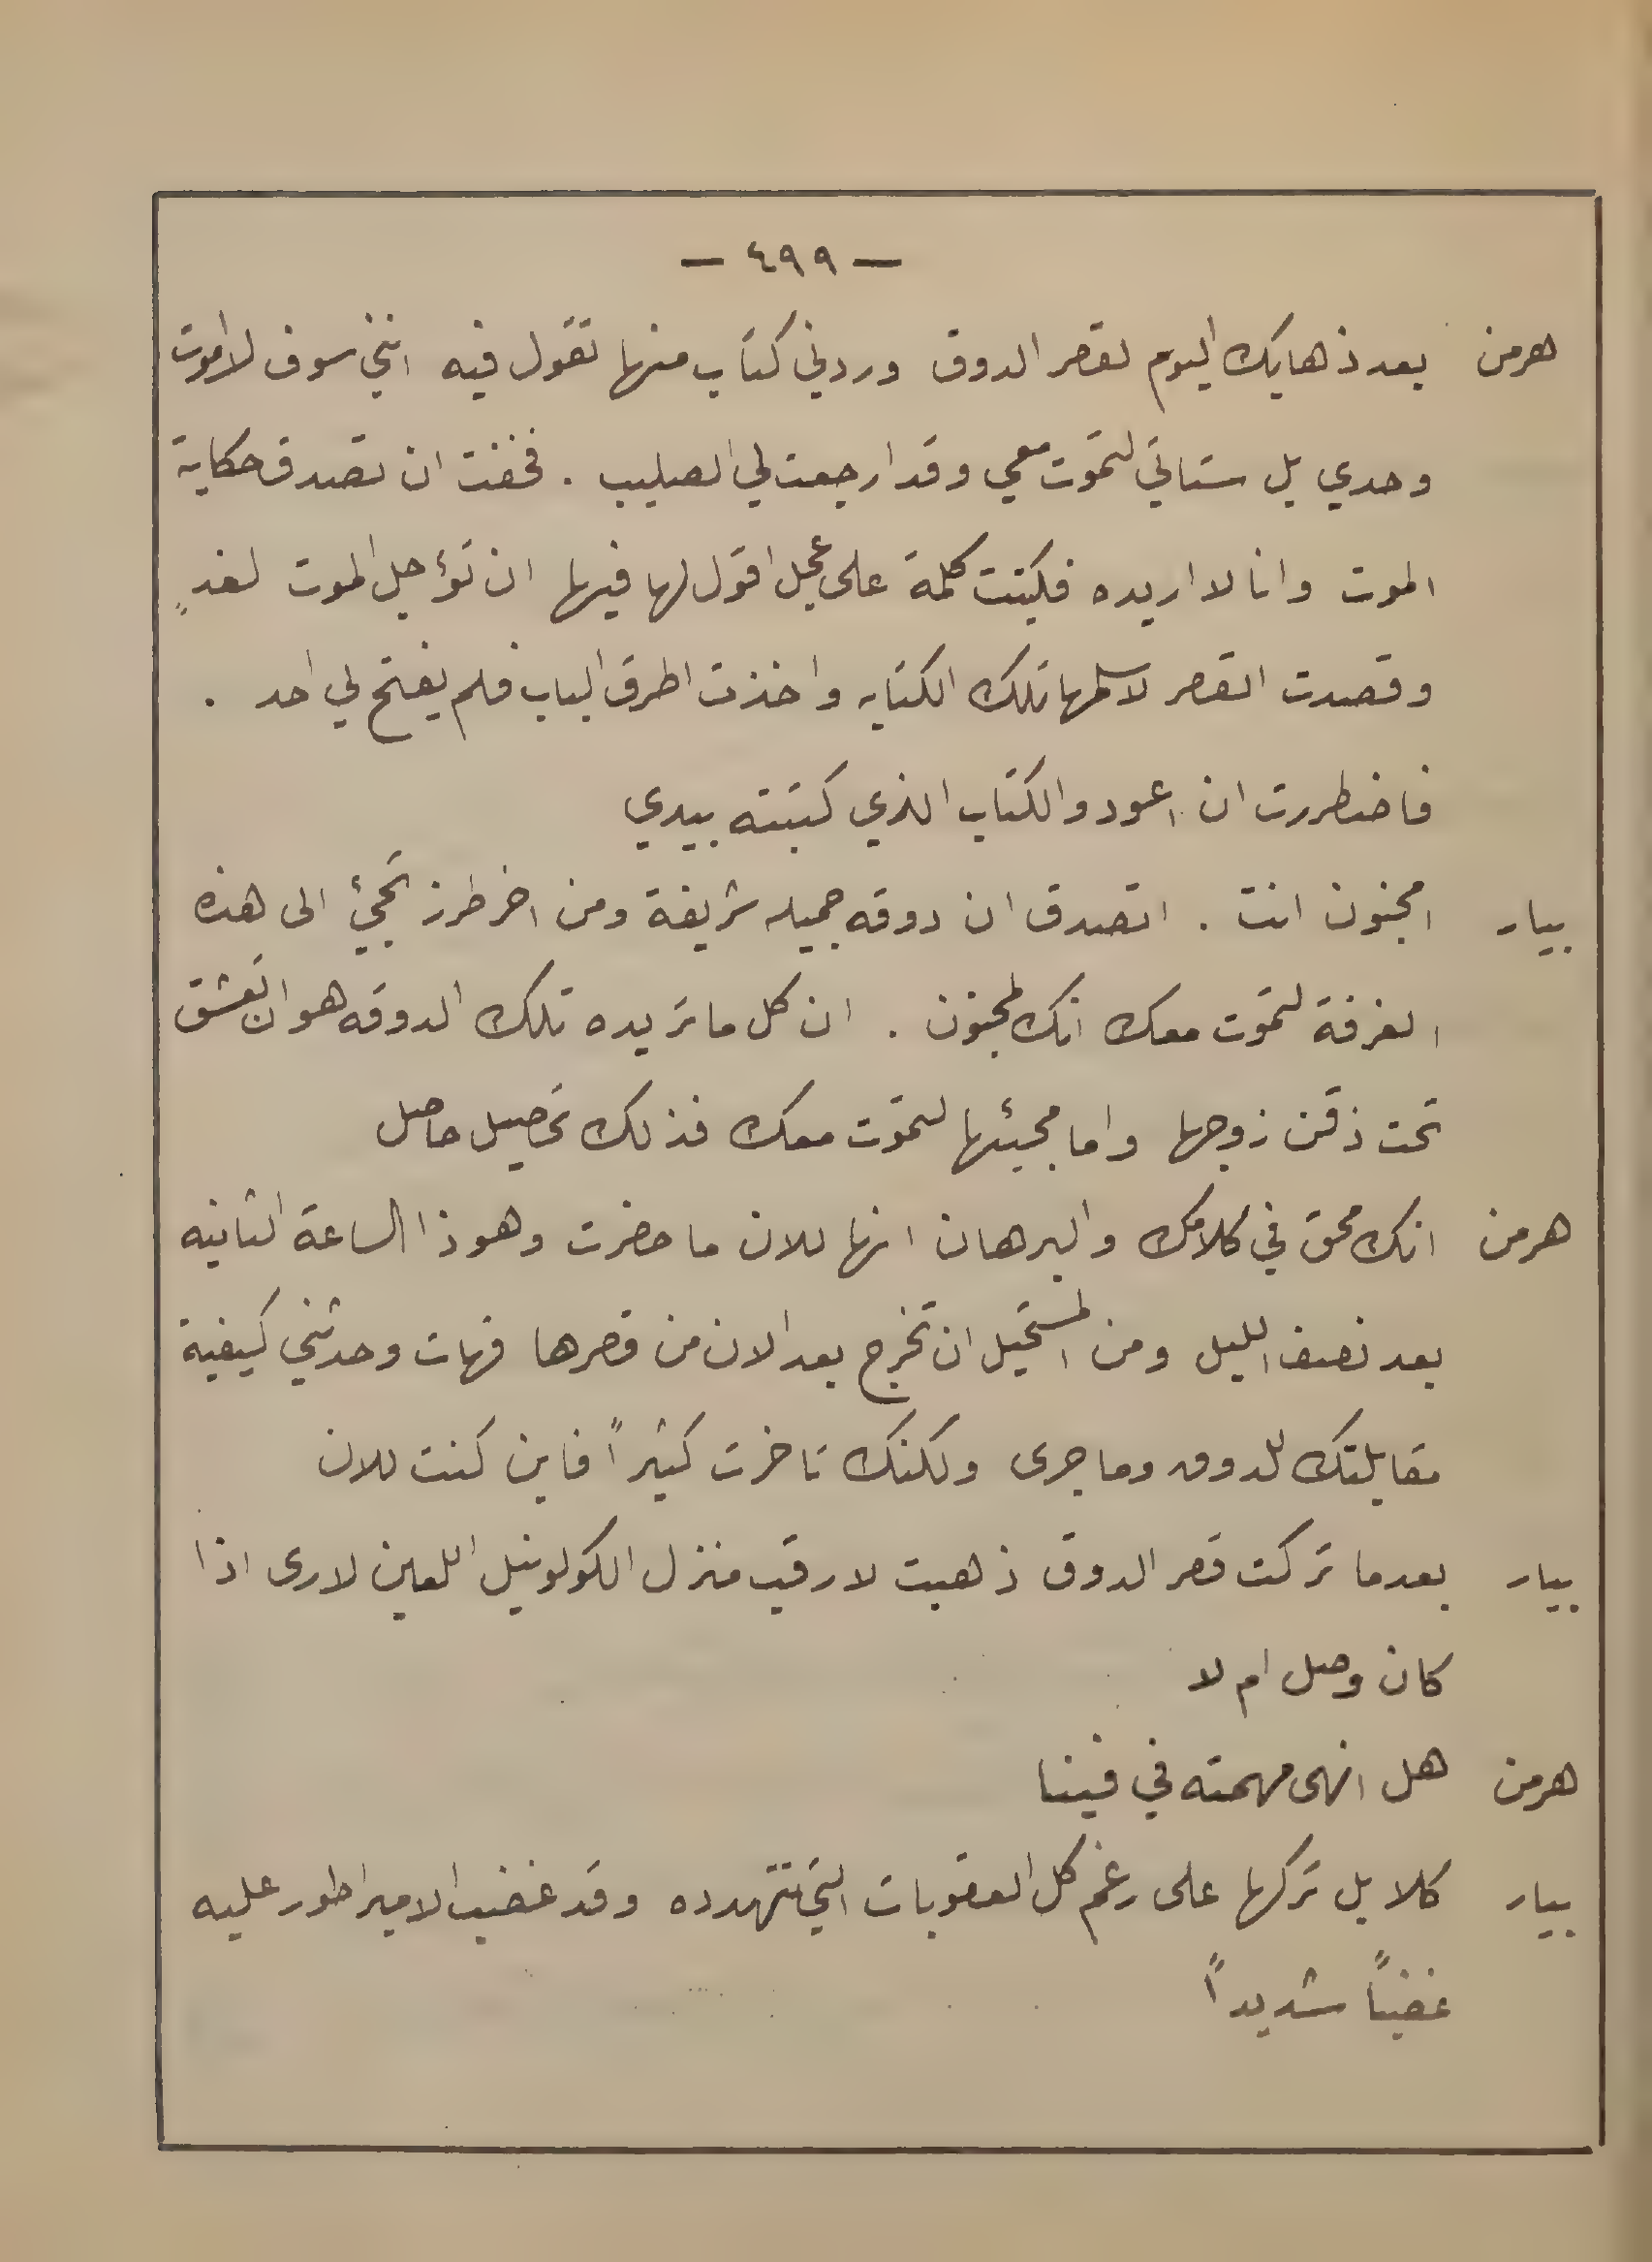 — ٤٩٩ —
هرمن بعد ذهابك اليوم لقصر الدوق وردني كتاب منها تقول فيه انني سوف لا اموت
وحدي بل ستاتي لتموت معي وقد ارجعت لي الصليب . فخفت ان تصدق حكاية
الموت وانا لا اريده فكتبت كلمة على عجل اقول لها فيها ان تؤجل الموت لغدٍ
وقصدت القصر لاسلمها تلك الكتابه واخذت اطرق الباب فلم يفتح لي احد .
فاضطررت ان اعود والكتاب الذي كتبته بيدي
بيار امجنون انت . اتصدق ان دوقه جميله شريفة ومن اخر طرز تجيئ الى هذه
الغرفة لتموت معك انك لمجنون . ان كل ما تريده تلك الدوقه هو ان تعشق
تحت ذقن زوجها واما مجيئها لتموت معك فذلك تحصيل حاصل
هرمن انك محق في كلامك والبرهان انها للان ما حضرت وهوذا الساعة الثانيه
بعد نصف الليل ومن المستحيل ان تخرج بعد الان من قصرها فهات وحدثني كيفية
مقابلتك للدوق وما جرى ولكنك تاخرت كثيراً فاين كنت للان
بيار بعدما تركت قصر الدوق ذهبت لارقب منزل الكولونيل اللعين لارى اذا
كان وصل ام لا
هرمن هل انهى مهمته في فينا
بيار كلا بل تركها على رغم كل العقوبات التي تتهدده وقد غضب الامبراطور عليه
غضباً شديداً